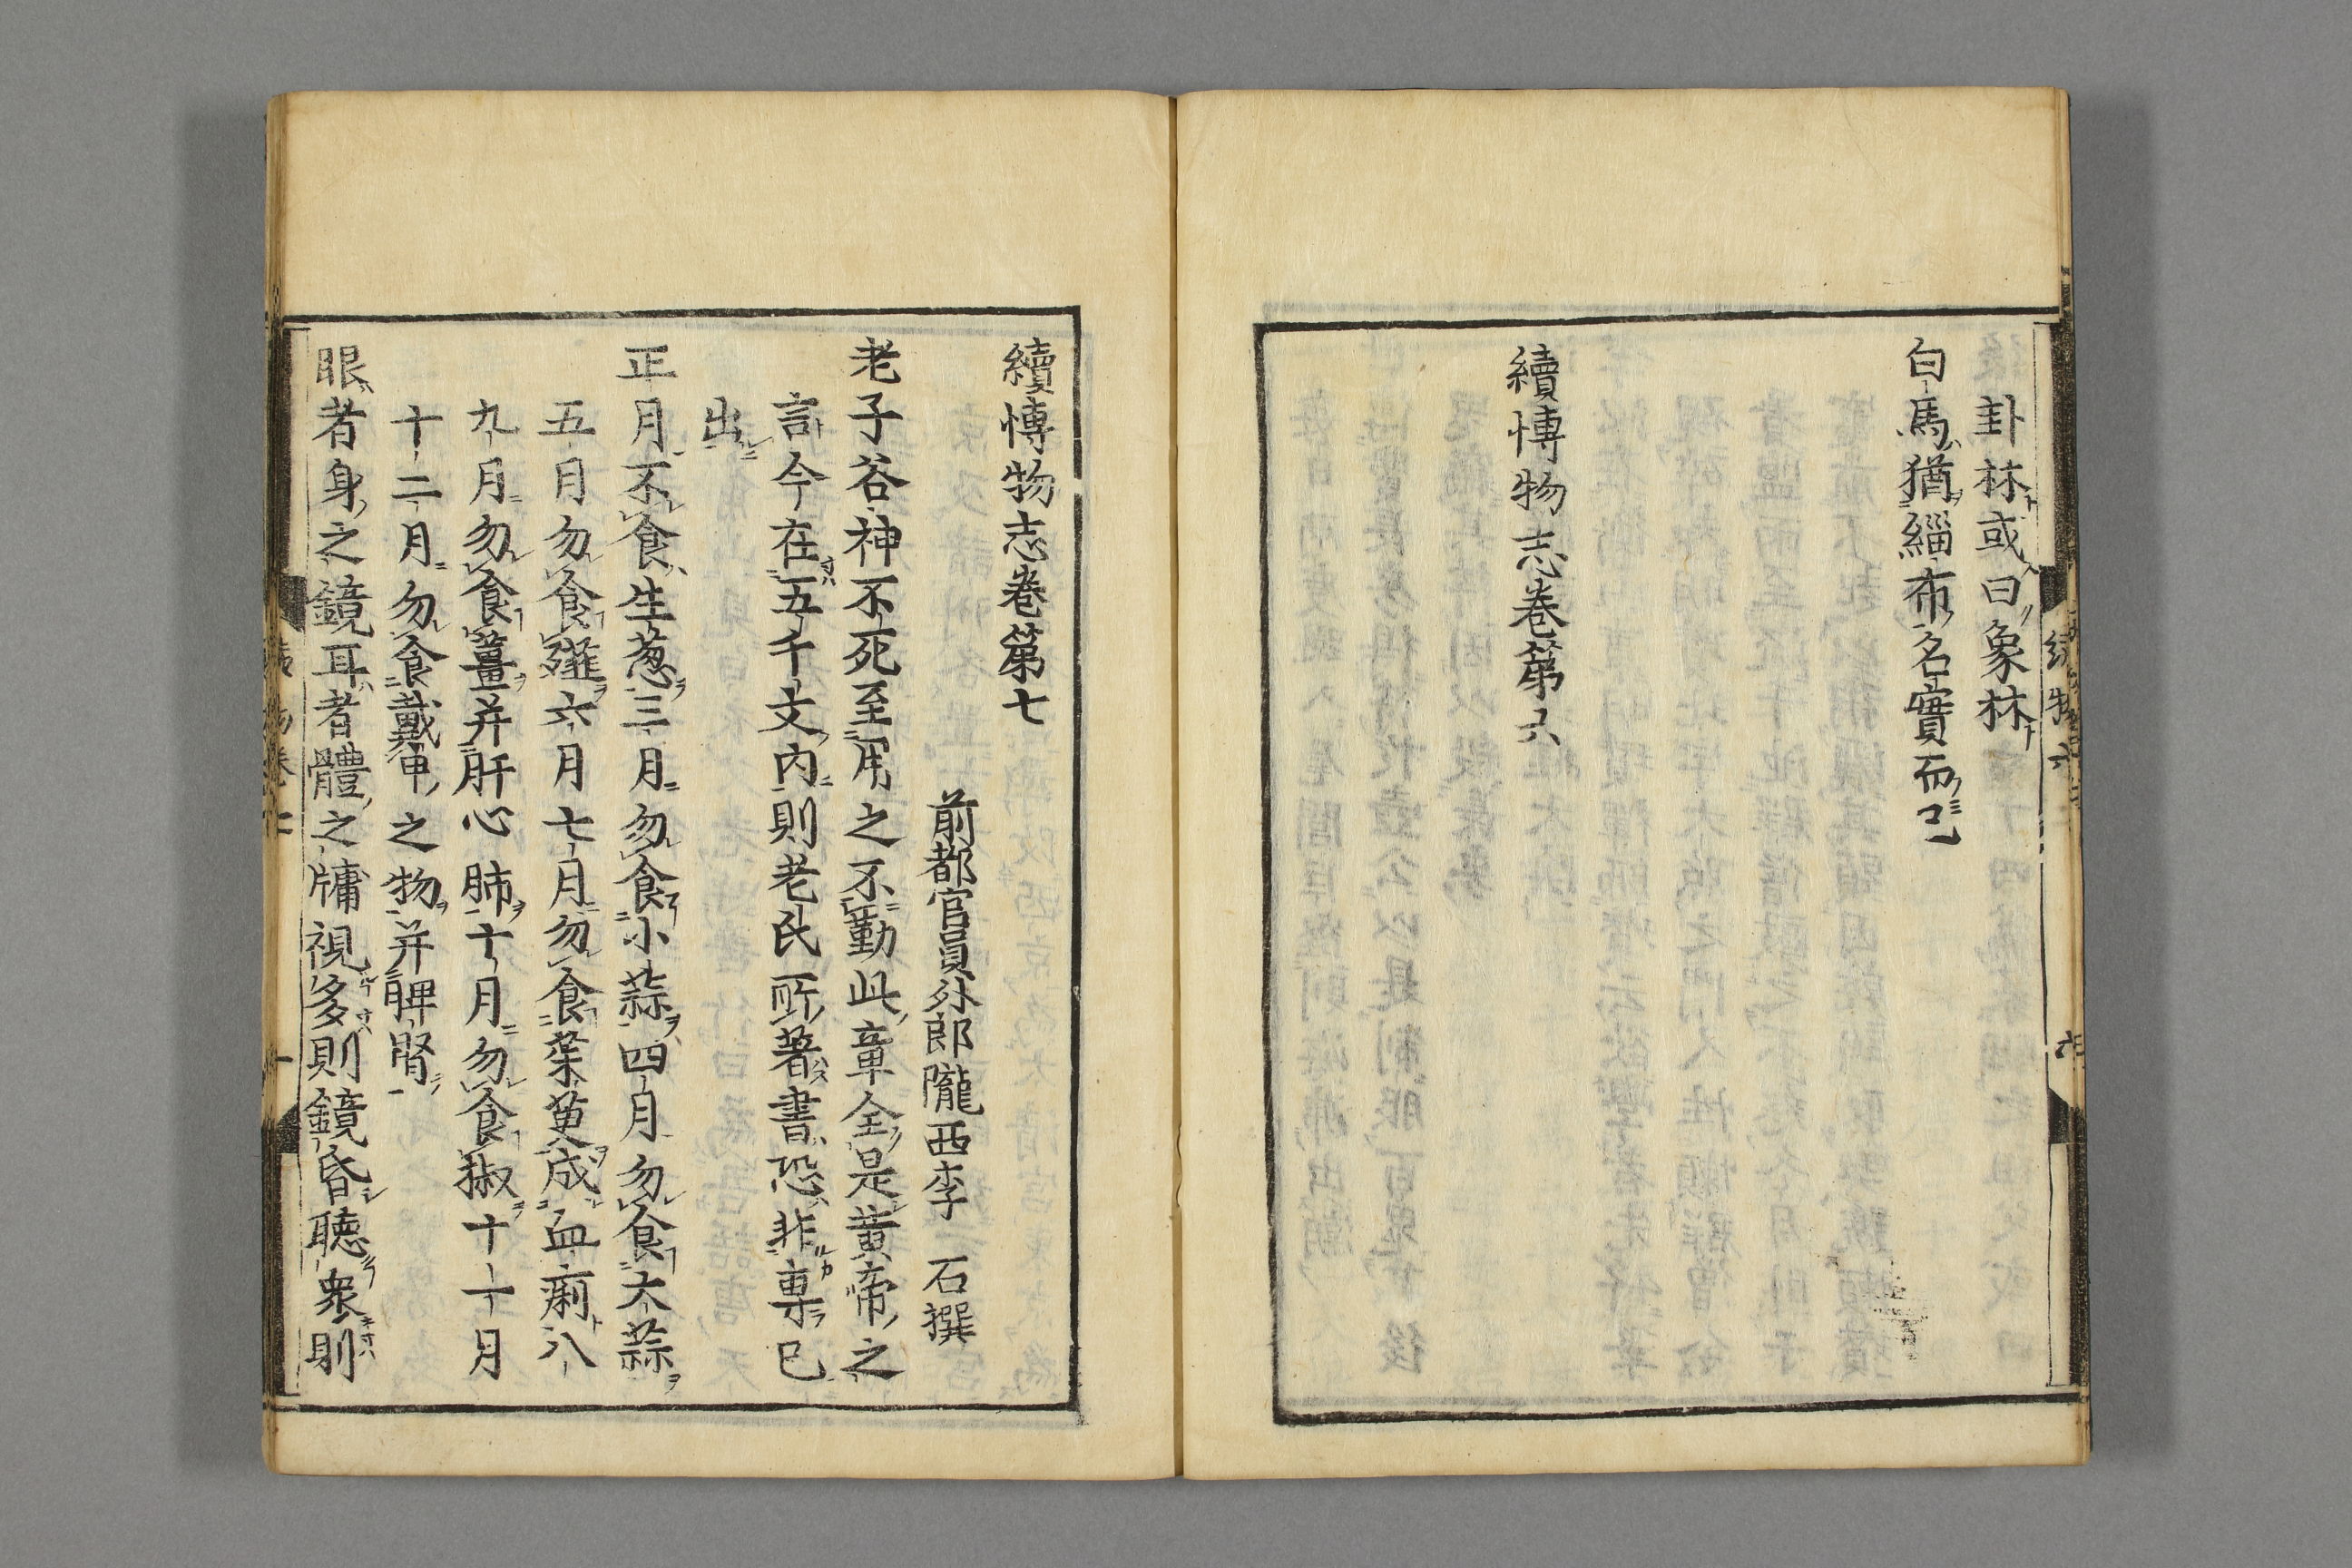 卦林或曰象林
白馬猶緇布名實而已
續博物志卷第六
續博物志卷第七
前都官員外郎隴西李　石撰
老子谷神不死至用之不勤此章全是黄帝之
言今在五千文内則老氏所著書恐非專巳
出
正月不食生葱三月勿食小蒜四月勿食大蒜
五月勿食薤六月七月勿食茱萸成血痢八
九月勿食薑并肝心肺十月勿食椒十十月
十二月勿食戴甲之物并脾腎
眼者身之鏡耳者體之牗視多則鏡昏聴衆則